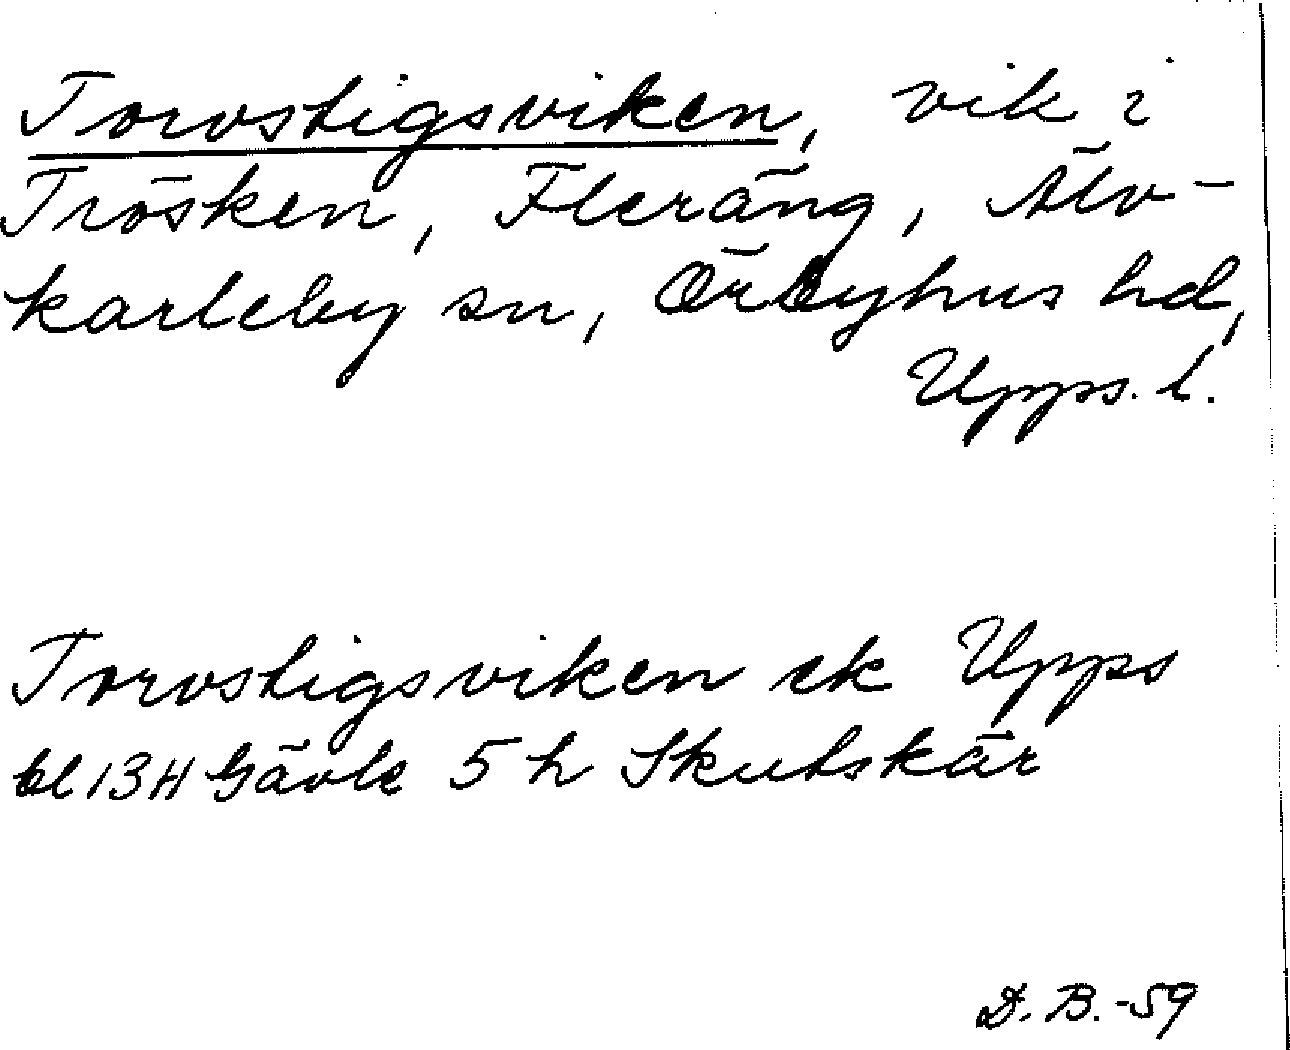 Torvstigsviken, vik i
Trösken, Fleräng, Älv-
karleby sn, Örbyhus hd,
Upps. l.
Torvstigsviken ek Upps
bl 13H Gävle 5 h Skutskär
D. B. -59